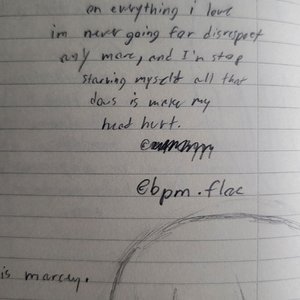 on everything i love
im never going for disrespect
any more, and I'm stop
starving myself all that
does is make my
head hurt.
@bpm.flac
is marcey.